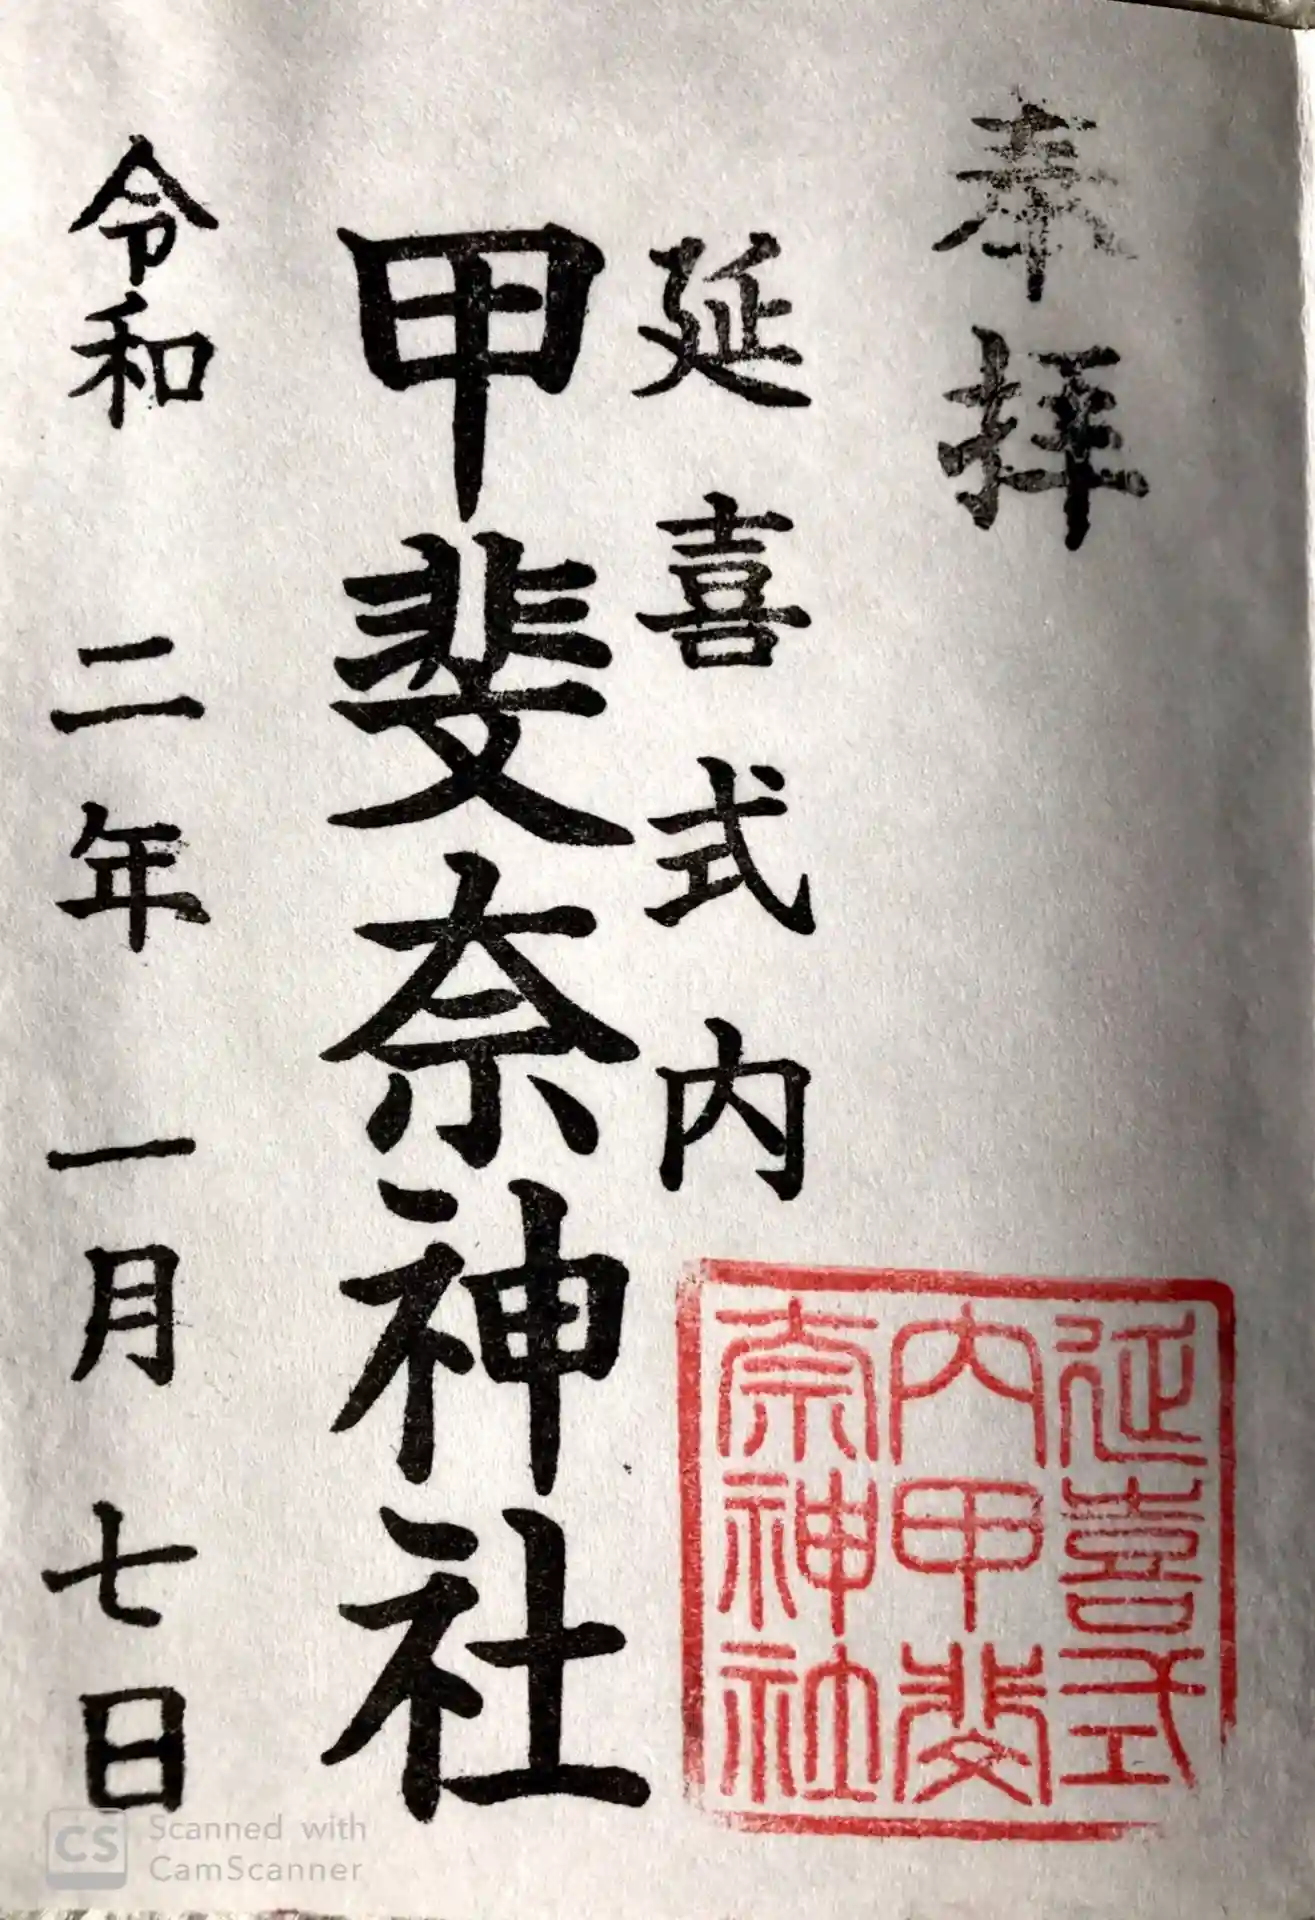 奉拝
延喜式内
甲斐奈神社
令和二年一月七日
延喜式
内甲斐
奈神社
CS Scanned with
CamScanner